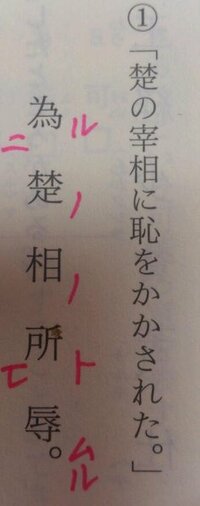 ①「楚の宰相に恥をかかされた。」
為ル二楚ノ相ノ所ト一レ辱ムル。